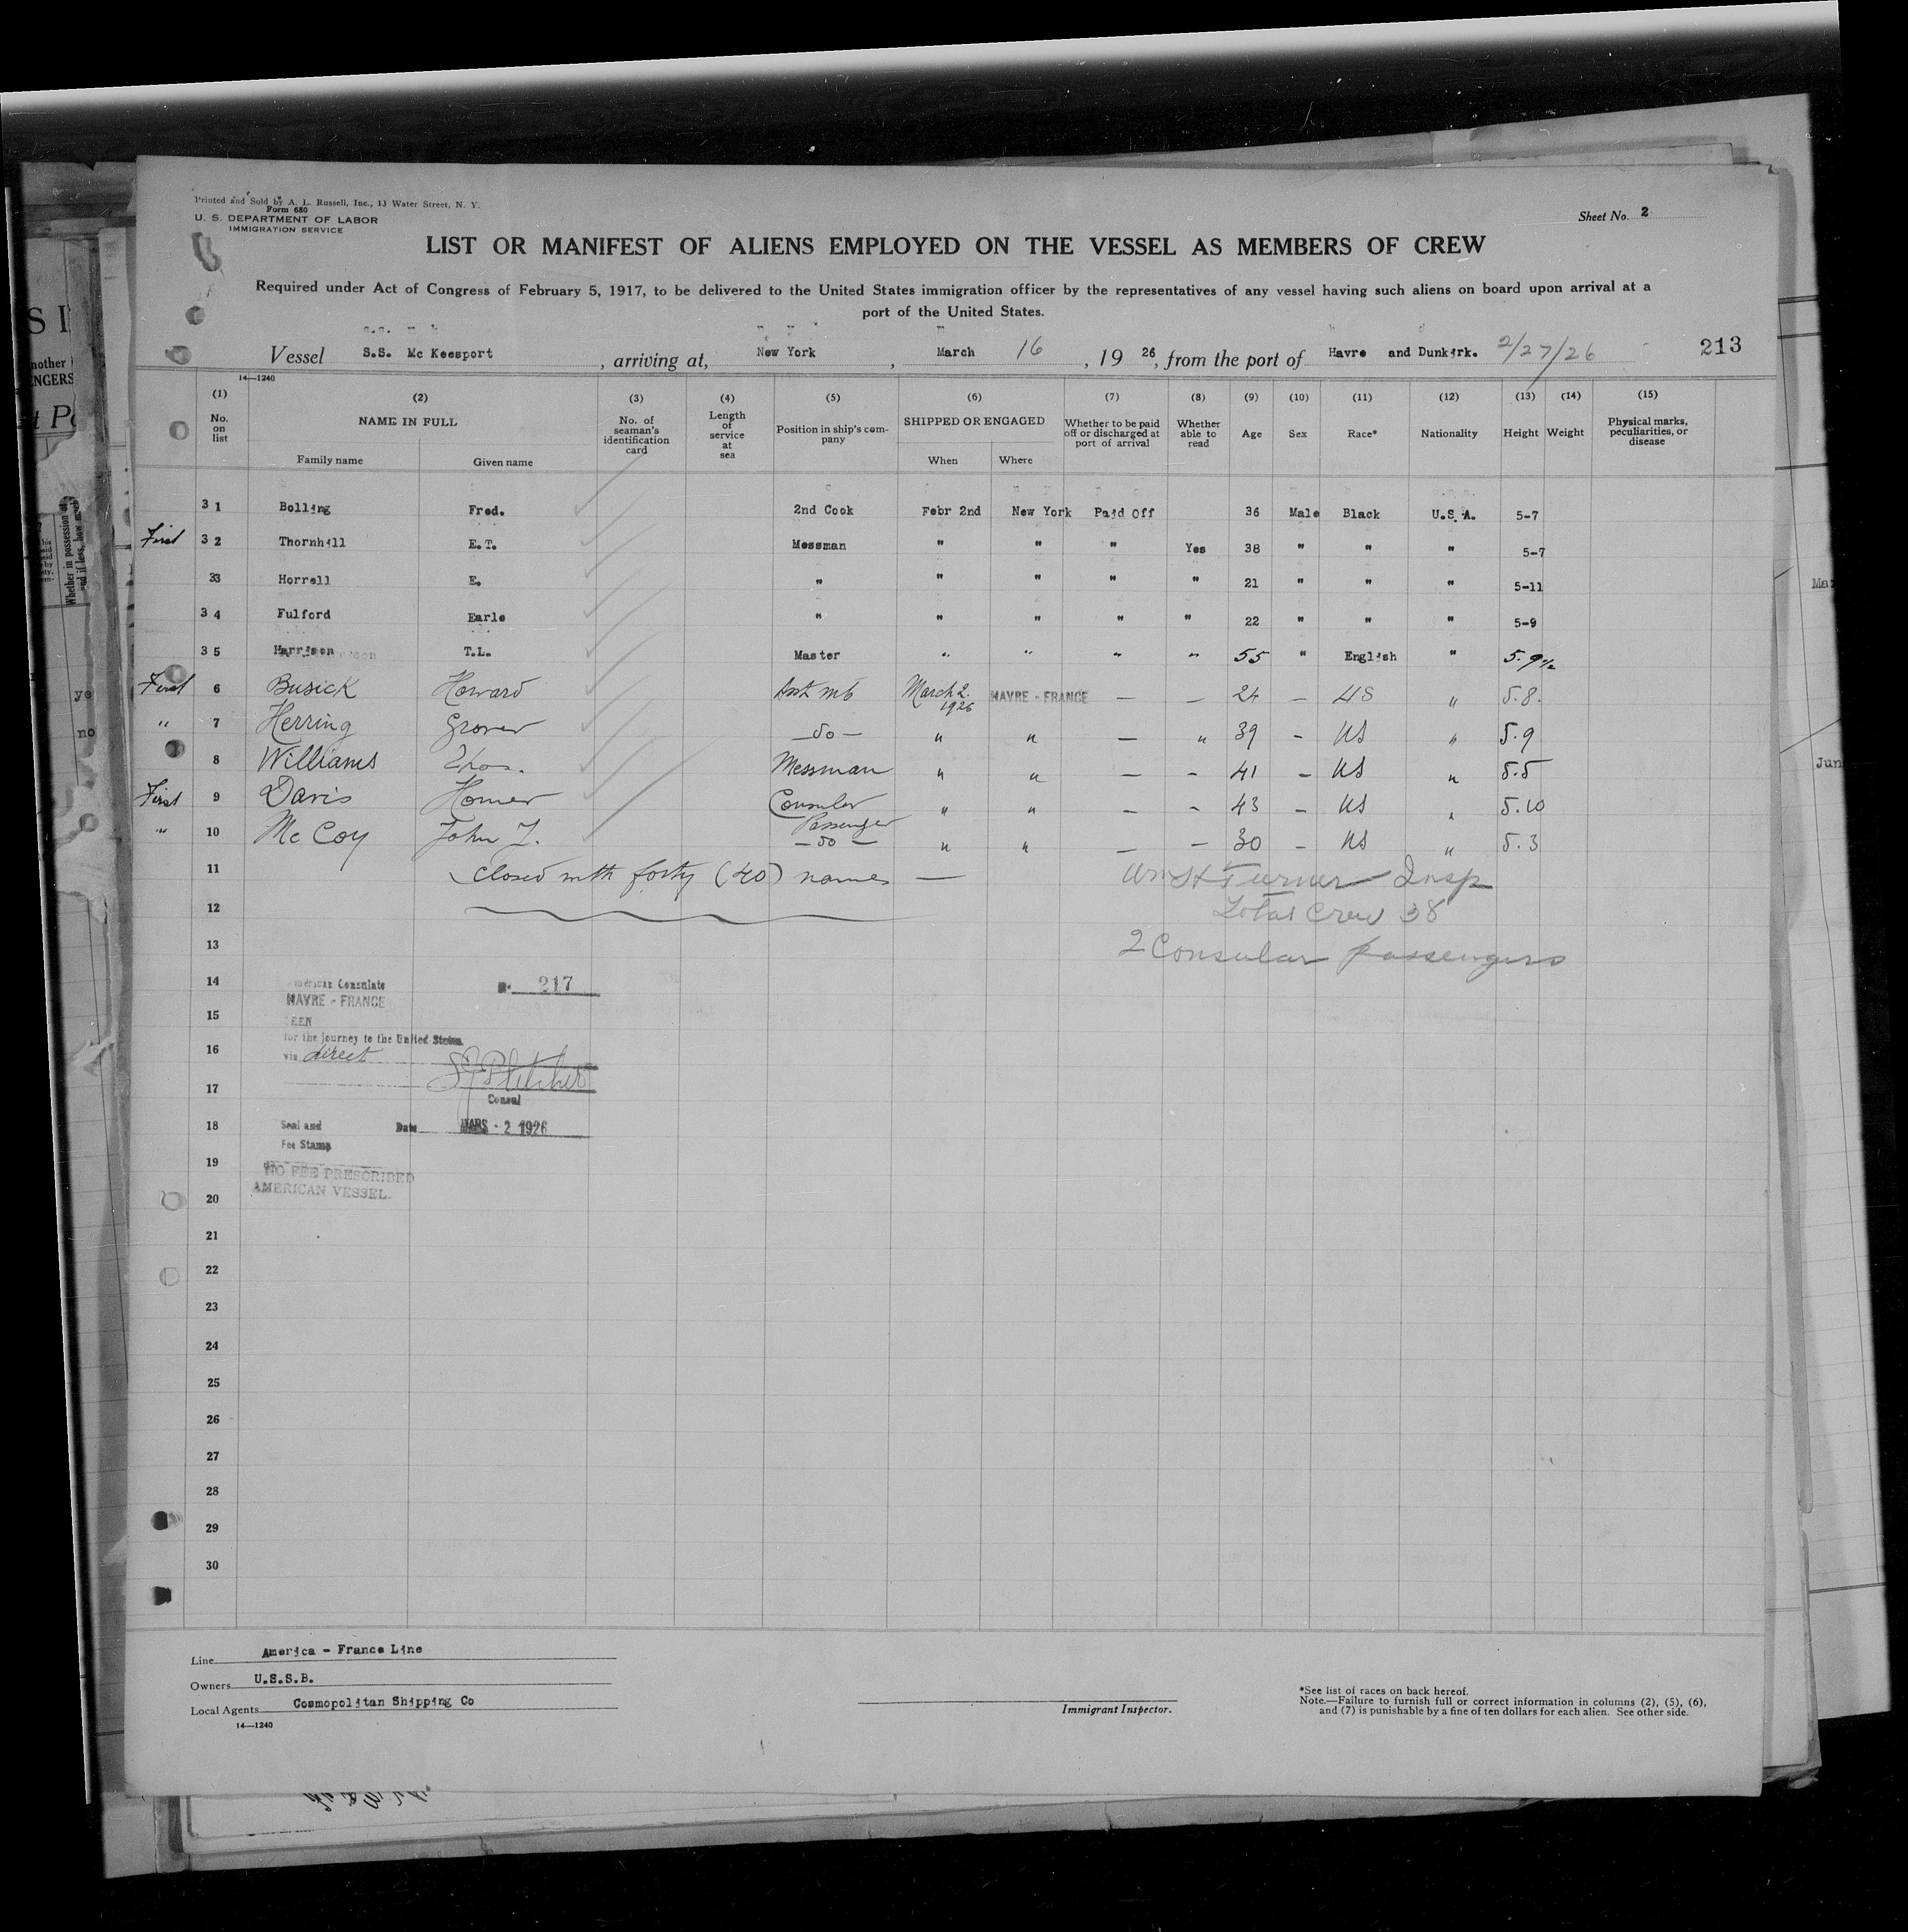 Printed and Sold by A. L. Russell, Inc., 13 Water Street, N. Y.
Form 680
U. S. DEPARTMENT OF LABOR
IMMIGRATION SERVICE
Sheet No. 2
LIST OR MANIFEST OF ALIENS EMPLOYED ON THE VESSEL AS MEMBERS OF CREW
Required under Act of Congress of February 5, 1917, to be delivered to the United States immigration officer by the representatives of any vessel having such aliens on board upon arrival at a
port of the United States.
Vessel S.S. Mc Keesport, arriving at, New York, March 16, 19 26, from the port of Havre and Dunkirk. 2/27/26 213
14—1240
(1) (2) (3) (4) (5) (6) (7) (8) (9) (10) (11) (12) (13) (14) (15)
No. on list NAME IN FULL No. of seaman's identification card Length of service at sea Position in ship's company SHIPPED OR ENGAGED Whether to be paid off or discharged at port of arrival Whether able to read Age Sex Race* Nationality Height Weight Physical marks, peculiarities, or disease
Family name Given name When Where
3 1 Bolling Fred. 2nd Cook Febr 2nd New York Paid Off 36 Male Black U.S.A. 5-7
First 3 2 Thornhill E.T. Messman " " " Yes 38 " " " 5-7
33 Horrell E. " " " " " 21 " " " 5-11
3 4 Fulford Earle " " " " " 22 " " " 5-9
3 5 Harrison T.L. Master " " " " 55 " English " 5.9½
First 6 Busick Howard March 2. 1926 HAVRE - FRANCE — — 24 — US " 5.8.
" 7 Herring Grover —do— " " — " 39 - US " 5.9
8 Williams Thos. Messman " " — - 41 — US " 5.5
First 9 Davis Homer Consular Passenger " " — - 43 — US " 5.10
" 10 Mc Coy John J. —do— " " — — 30 — US " 5.3
11 Closed with forty (40) names — Wm H Turner Insp
12 Total Crew 38
13 2 Consular passengers
14 American Consulate No. 217
HAVRE - FRANCE
15 SEEN
for the journey to the United States
16 via direct
17 Consul
18 Seal and Date MARS - 2 1926
Fee Stamp
19 NO FEE PRESCRIBED
20 AMERICAN VESSEL.
21
22
23
24
25
26
27
28
29
30
Line America - France Line
Owners U.S.S.B.
Local Agents Cosmopolitan Shipping Co
14—1240
Immigrant Inspector.
*See list of races on back hereof.
Note.—Failure to furnish full or correct information in columns (2), (5), (6),
and (7) is punishable by a fine of ten dollars for each alien. See other side.